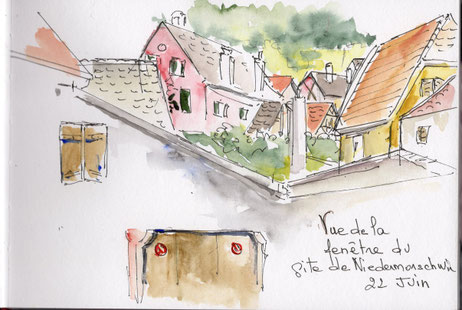 Vue de la
fenêtre du
gite de Niedermorschwih
22 Juin